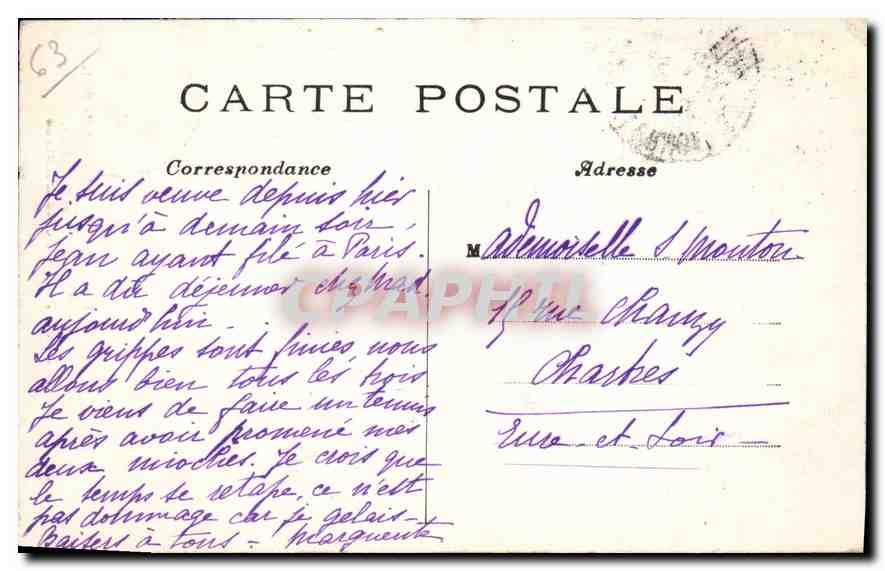 63
CARTE POSTALE
Correspondance
Adresse
Je suis veuve depuis hier
jusqu'à demain soir,
Jean ayant filé à Paris.
Il a dû déjeuner chez Mad.
aujourd'hui . . .
Les grippes sont finies, nous
allons bien tous les trois
Je viens de faire un tennis
après avoir promené mes
deux mioches. Je crois que
le temps se retape, ce n'est
pas dommage car je gelais —
Baisers à tous — Marguerite
Mademoiselle S Mouton
rue Chanzy
Chartres
Eure-et-Loir —
CPAPHIL